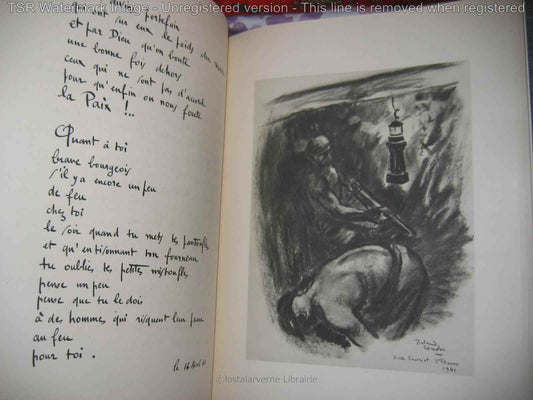 TSR Watermark Image - Unregistered version - This line is removed when registered
portefaix
sur eux le poids du
et par Dieu qu'on boute
une bonne fois dehors
ceux qui ne sont pas d'accord
pour qu'enfin on nous foute
la Paix !..
Quant à toi
brave bourgeois
s'il y a encore un peu
de feu
chez toi
le soir quand tu mets tes pantoufles
et qu'en tisonnant ton fourneau
tu oublies tes petites mistoufles
pense un peu
pense que tu le dois
à des hommes qui risquent leur peau
au feu
pour toi .
le 16 Avril 41
Roland
1941
©lostalarverne Librairie